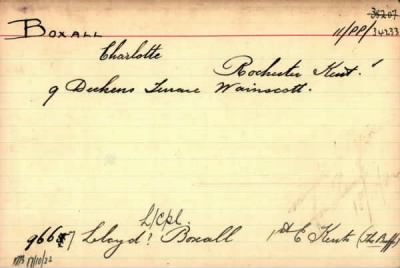 36207
BOXALL 11/PP/34233
Charlotte
Rochester Kent.
9 Dickens Terrace Wainscott.
L/Cpl.
9667 Lloyd? Boxall 1st E Kents (The Buffs)
17/10/22